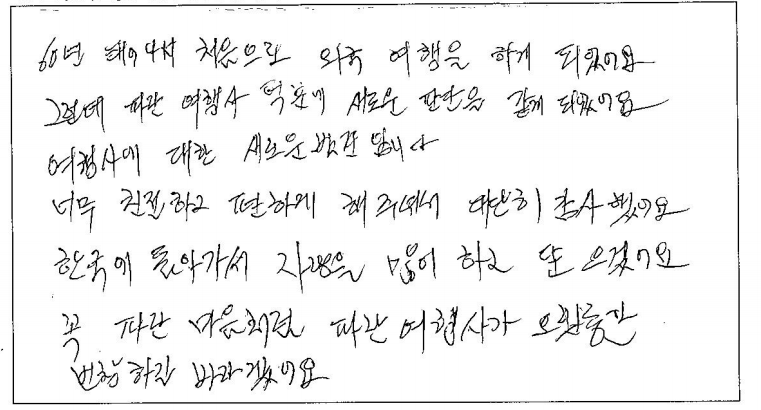 60년 태어나서 처음으로 외국 여행을 하게 되었어요
그런데 파란 여행사 덕분에 새로운 판단을 갖게 되었어요
여행사에 대한 새로운 발견 입니다
너무 친절하고 편하게 해 주셔서 대단히 감사했어요
한국에 돌아가서 자랑을 많이 하고 또 오겠어요
꼭 파란 마음처럼 파란여행사가 오랫동안
번창하길 바라겠어요